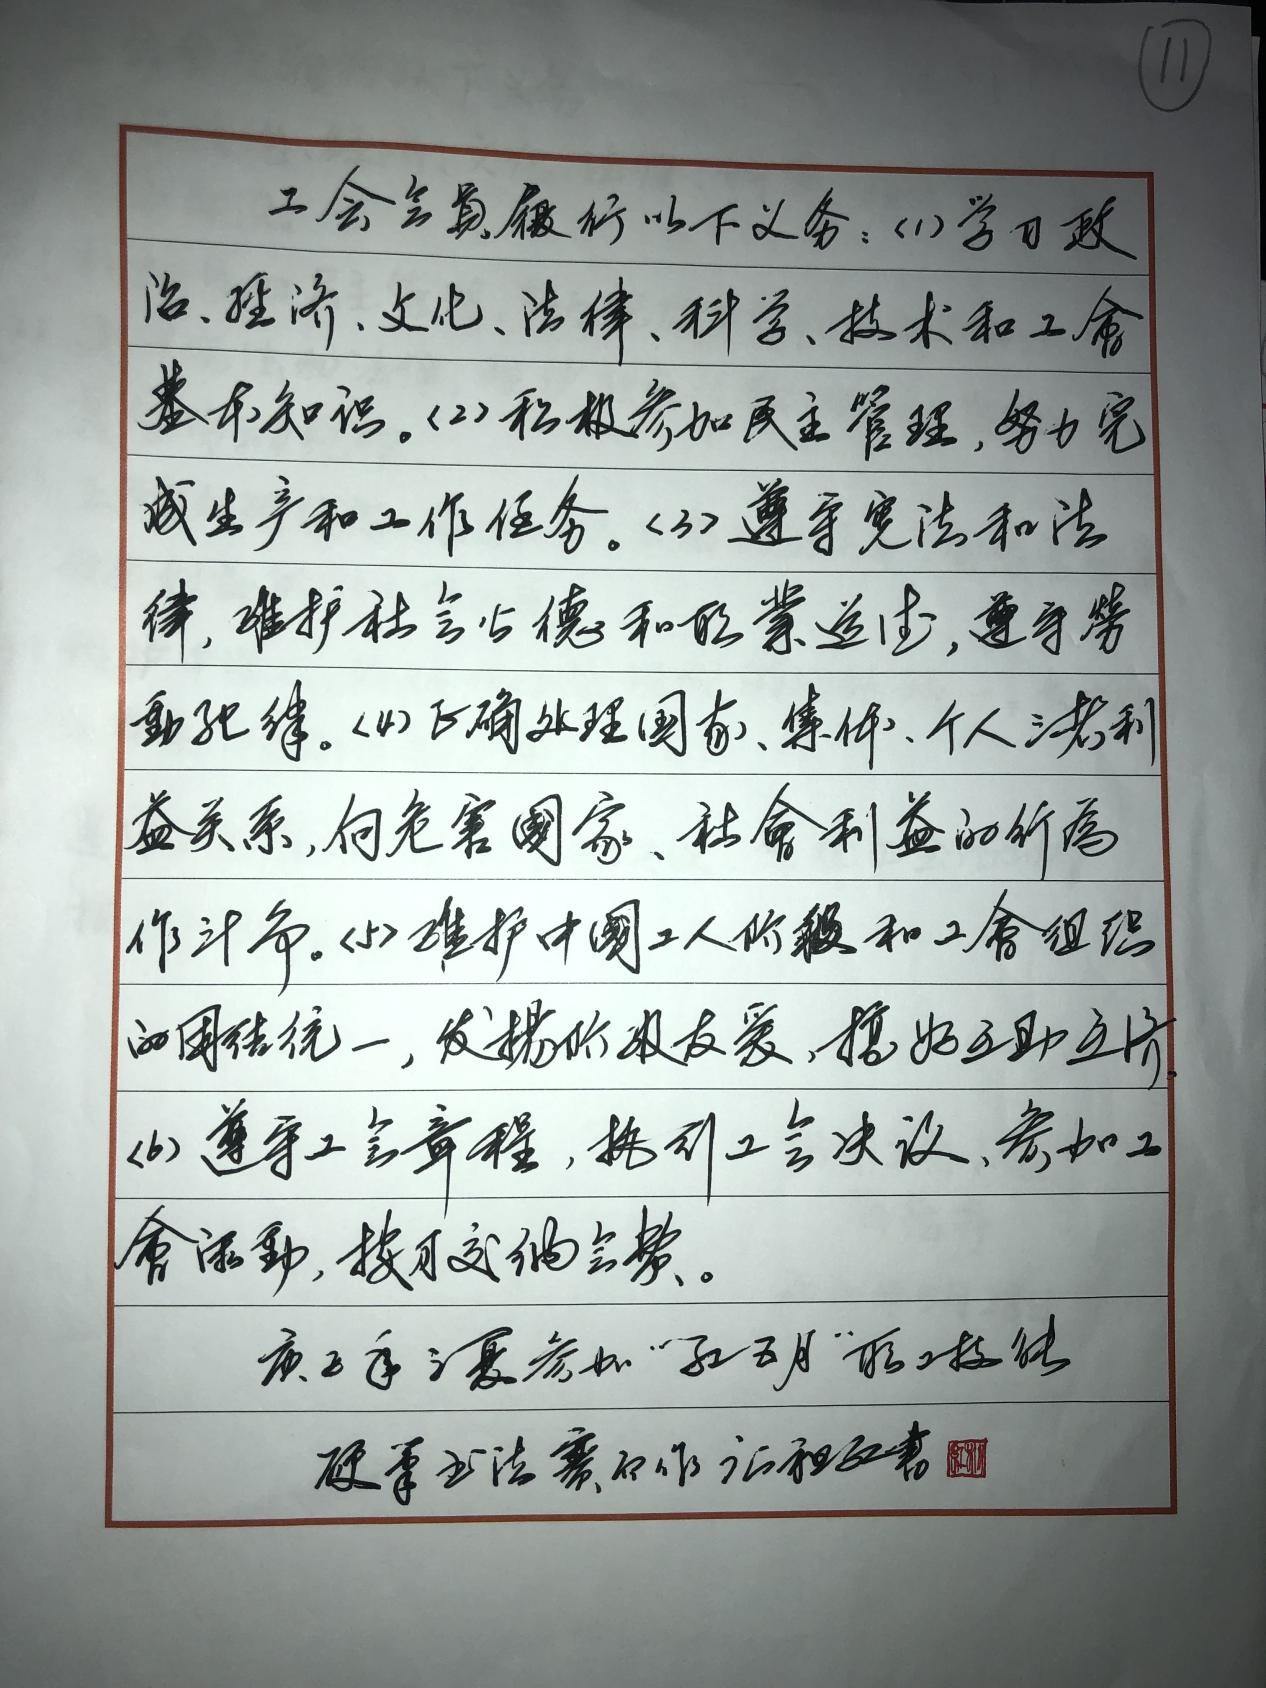 11
工会会员履行以下义务：(1)学习政
治、经济、文化、法律、科学、技术和工會
基本知识。(2)积极参加民主管理，努力完
成生产和工作任务。(3)遵守宪法和法
律，维护社会公德和职業道德，遵守劳
動纪律。(4)正确处理国家、集体、个人三者利
益关系，向危害國家、社會利益的行為
作斗争。(5)维护中國工人阶级和工會组织
的团结统一，发揚阶级友爱，搞好互助互济。
(6)遵守工会章程，执行工会决议、参加工
會活動，按月交纳会费。
庚子年之夏参加“红五月”职工技能
硬筆书法赛 作 祖红書